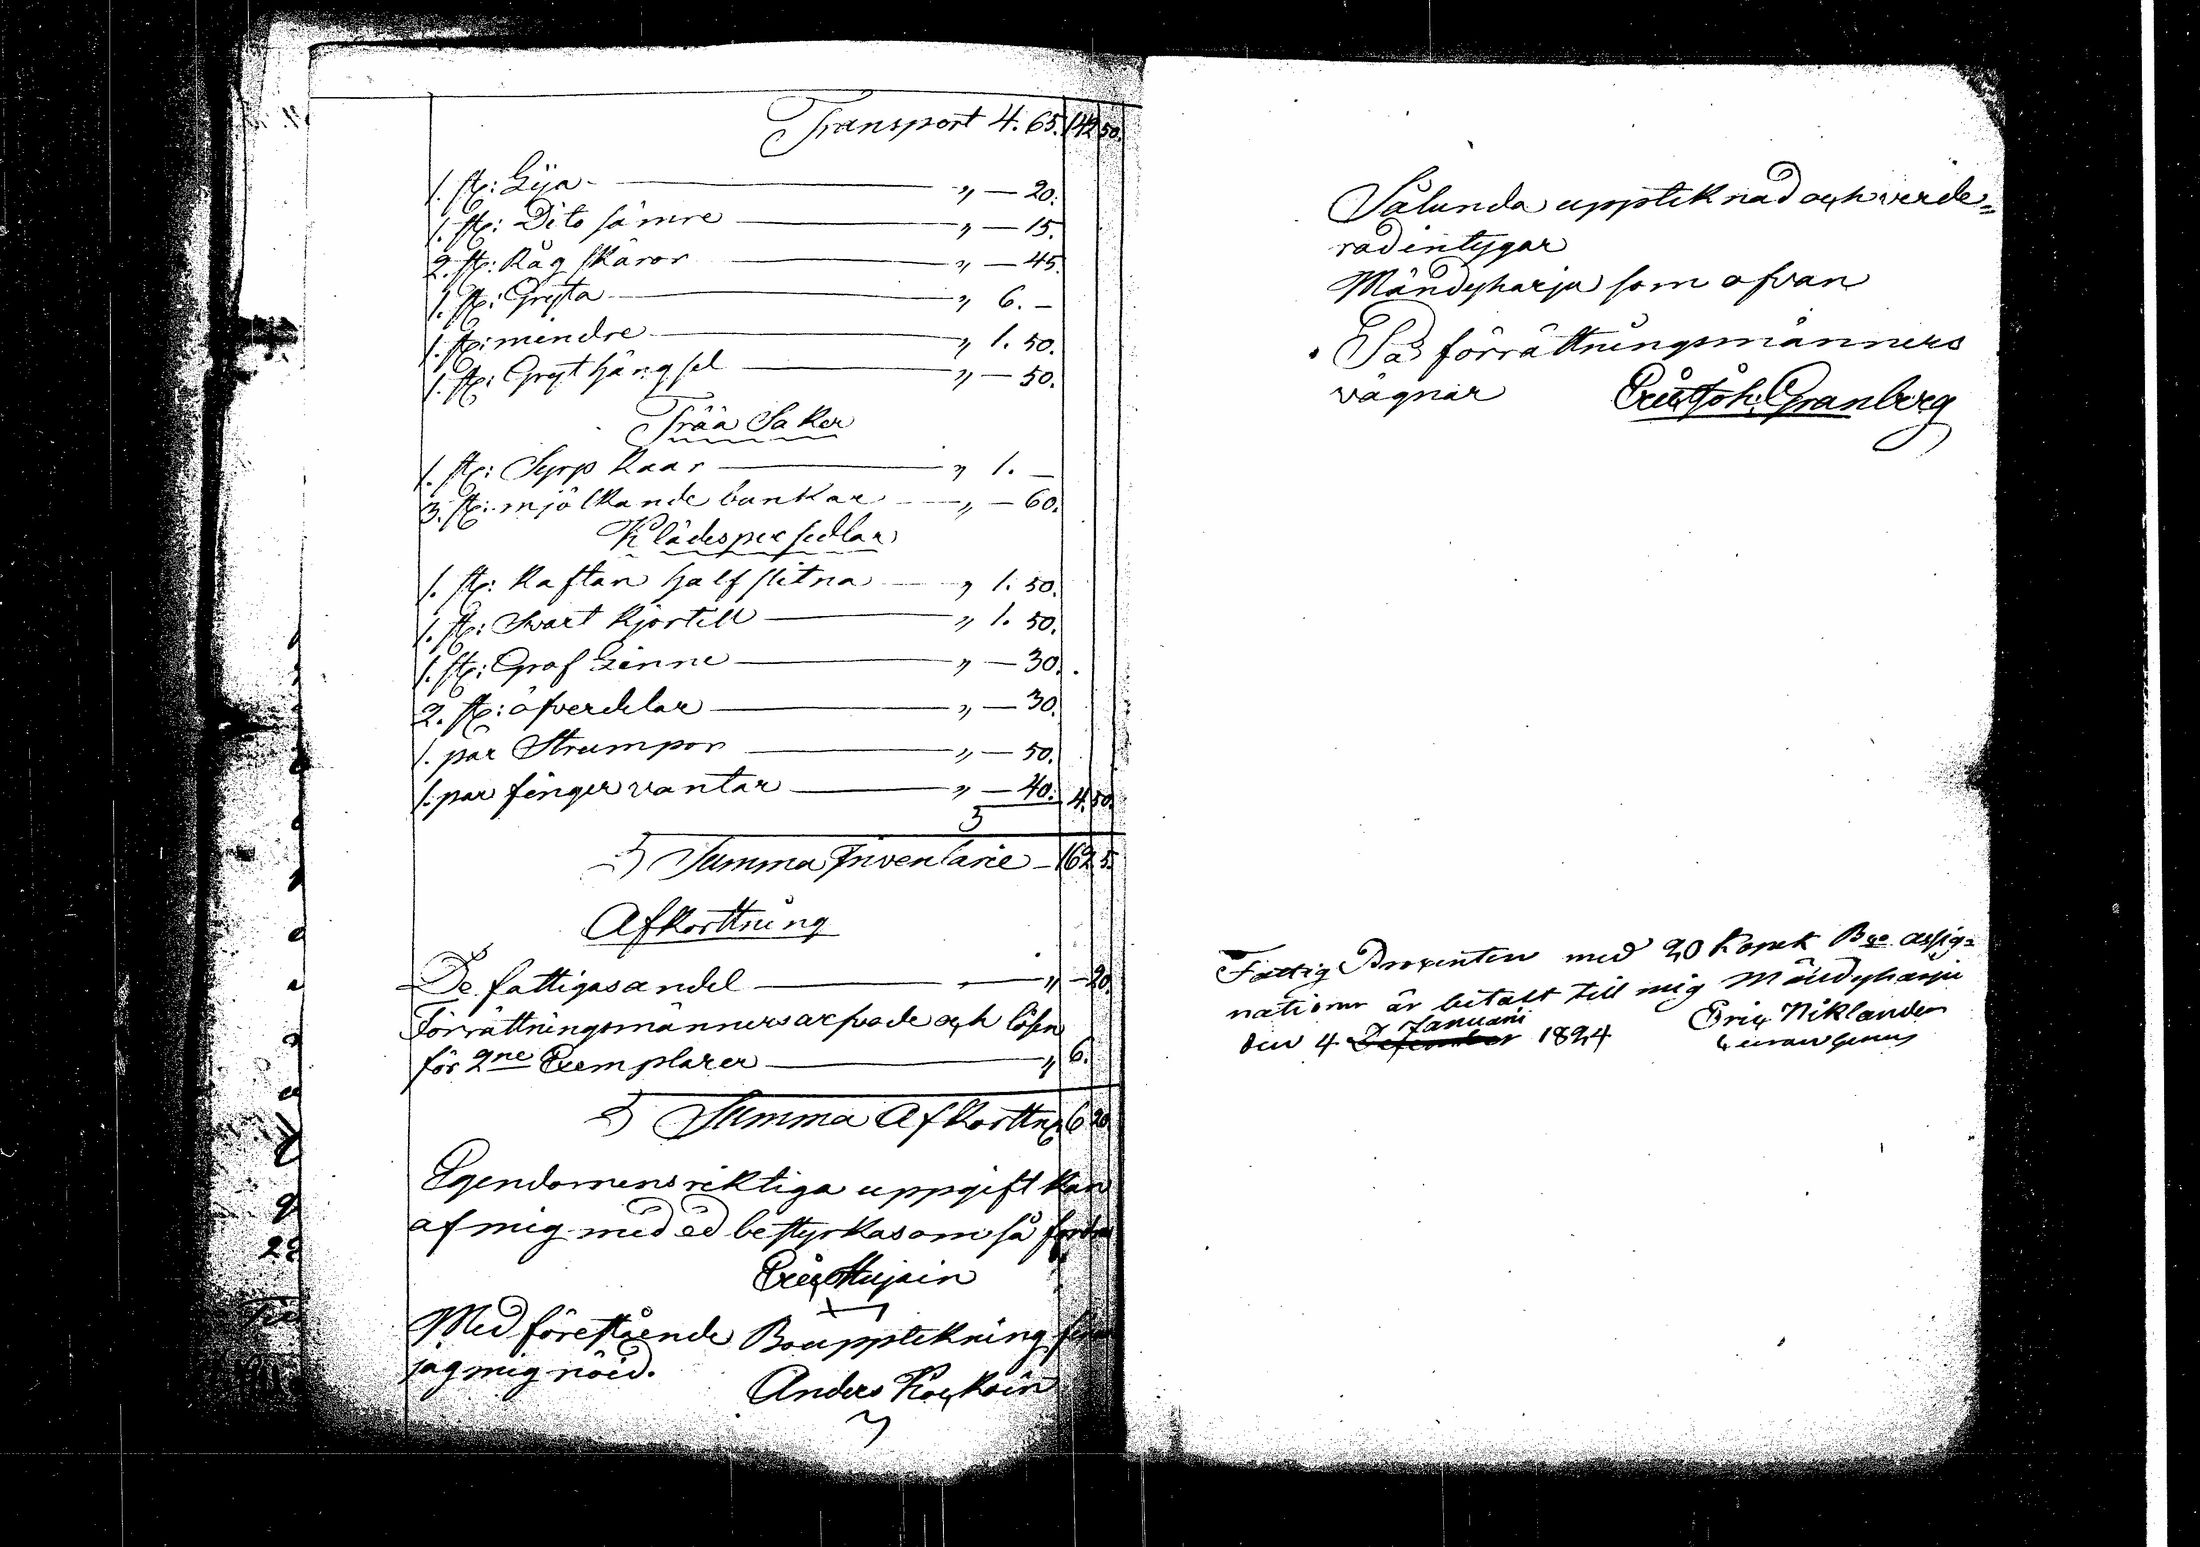 Transport 4. 65. 142 50.
1. st: Lija — „ — 20.
1. st: Dito sämre — „ — 15.
2. st: Råg skäror — „ — 45.
1. st: Gryta — „ 6. —
1. st: mindre — „ 1. 50.
1. st: Gryt hängsel — „ — 50.
Trää Saker
1. st: Syrp Kaar — „ 1. —
3. st: mjölkande bunkar — „ — 60.
Klädespersedlar
1. st: Kaftan half slitna — „ 1. 50.
1. st: Svart Kjortell — „ 1. 50.
1. st: Graf Linne — „ — 30.
2. st: öfverdelar — „ — 30.
1. par Strumpor — „ — 50.
1. par finger vantar — „ — 40. 4. 50.
Summa Inventarie — 162 5.
Afkorttning
De fattigas andel — „ — 20.
Förrättningsmänners arfvode och lösen
för 2ne Exemplarer — „ 6.
Summa Afkorttng 6 20
Egendomens riktiga uppgift kan
af mig med ed bestyrkas om så fordra
Eric Hujain
Med förestående Bouppteckning finner
jag mig nöid.
Anders Kockoin
Sålunda uppteknad och verde=
rad intygar
Mändyharju som ofvan
På förrättningsmänners
vägnar Eric Joh. Granberg
Fattig Procenten med 20 Kopek Bco assig=
nationer är betalt till mig Mändyharju
den 4 Januari 1824 Eric Niklander